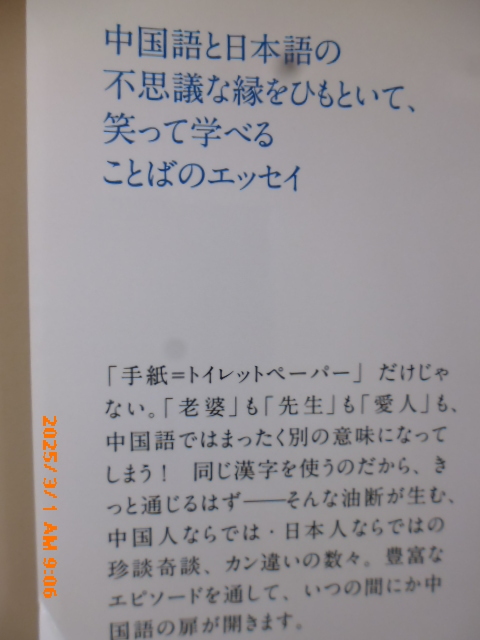 中国語と日本語の
不思議な縁をひもといて、
笑って学べる
ことばのエッセイ
「手紙=トイレットペーパー」だけじゃ
ない。「老婆」も「先生」も「愛人」も、
中国語ではまったく別の意味になって
しまう！　同じ漢字を使うのだから、き
っと通じるはず――そんな油断が生む、
中国人ならでは・日本人ならではの
珍談奇談、カン違いの数々。豊富な
エピソードを通して、いつの間にか中
国語の扉が開きます。
2025/3/1 AM 9:06